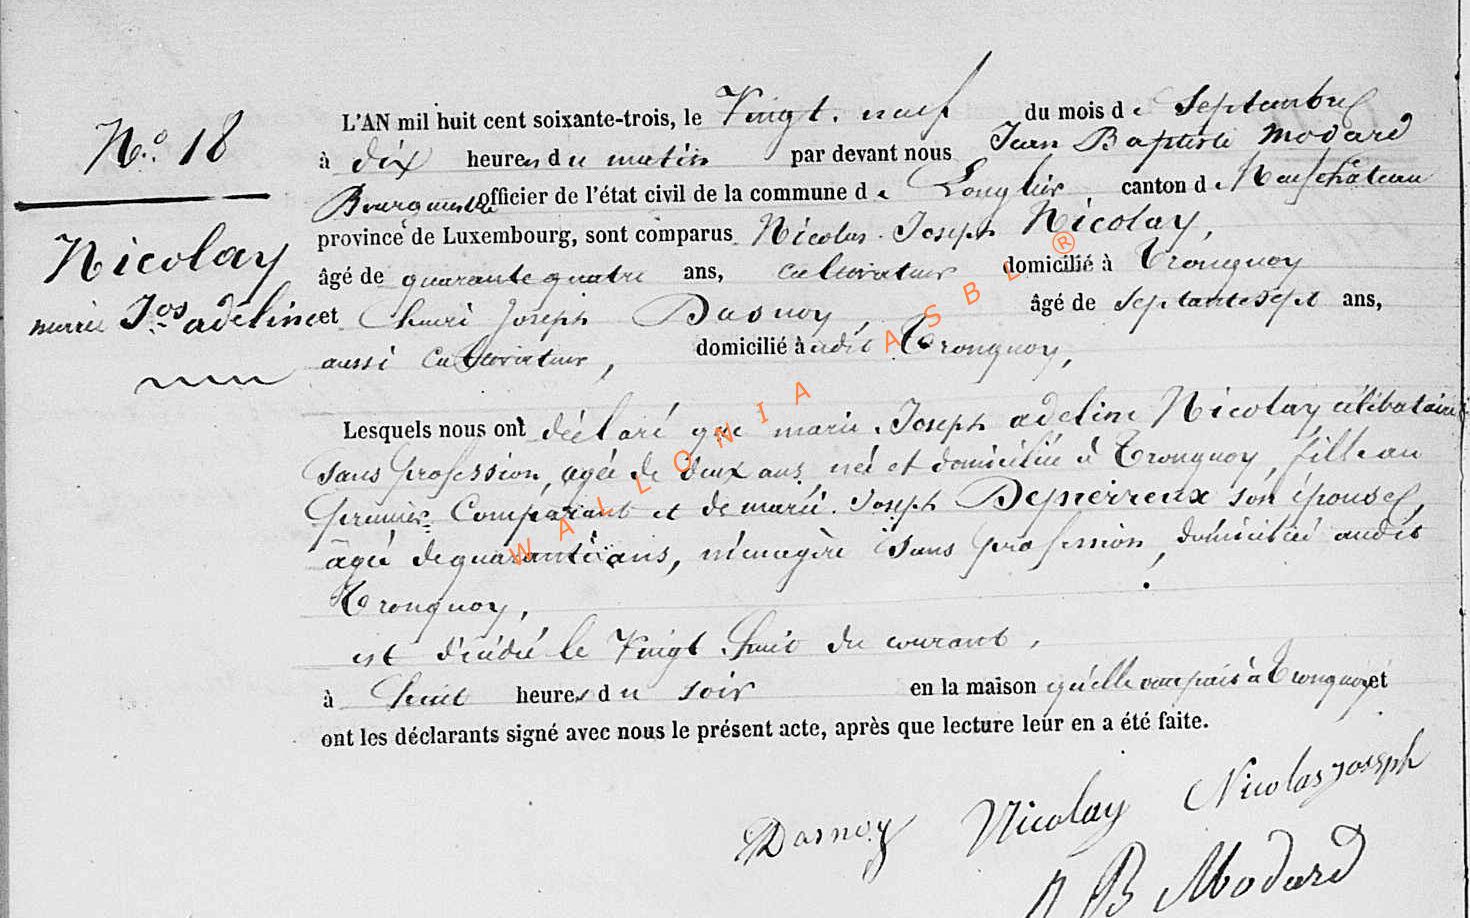 N.º 18
Nicolay
marie Jos adeline
L'AN mil huit cent soixante-trois, le Vingt. neuf du mois de Septembre
à dix heures du matin par devant nous Jean Baptiste Modard
Bourgmestre officier de l'état civil de la commune de Longlier canton de Neufchâteau
province de Luxembourg, sont comparus Nicolas. Joseph Nicolay,
âgé de quarante quatre ans, cultivateur domicilié à Tronquoy
et henri Joseph Dasnoy, âgé de septante sept ans,
aussi Cultivateur, domicilié à udit Tronquoy,
Lesquels nous ont déclaré que marie. Joseph adeline Nicolay célibataire
sans profession, agée de deux ans, née et domiciliée à Tronquoy, fille au
premier Comparant et de marie. Joseph Depierreux son épouse,
âgée de quarante ans, ménagère sans profession, domiciliée audit
Tronquoy,
est décédée le Vingt huit du courant,
à huit heures du soir en la maison qu'elle occupait à Tronquoy et
ont les déclarants signé avec nous le présent acte, après que lecture leur en a été faite.
Dasnoy Nicolay Nicolas Joseph
J B Modard
WALLONIA ASBL ®